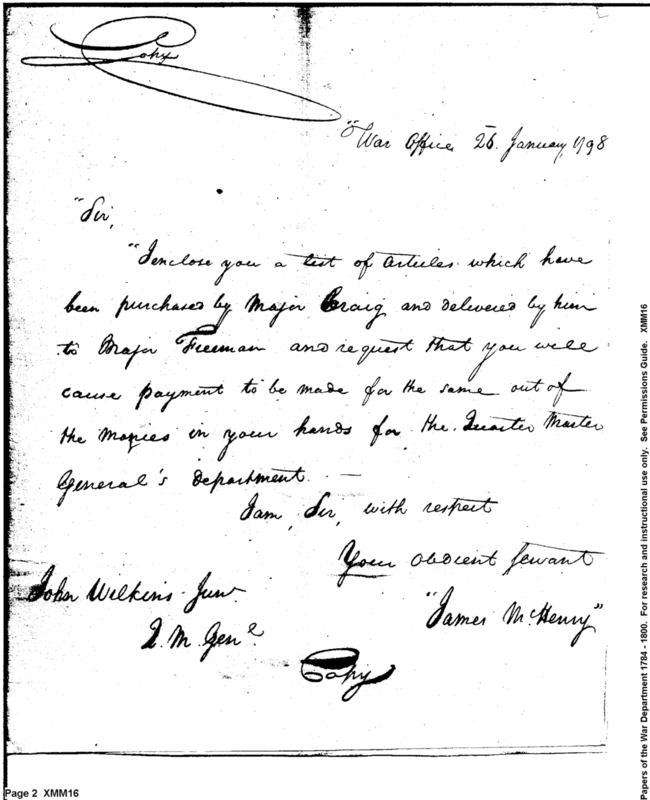 Copy
"War Office 26. January, 1798
"Sir,
"I enclose you a list of articles which have
been purchased by Major Craig and delivered by him
to Major Freeman and request that you will
cause payment to be made for the same out of
the monies in your hands for the Quarter Master
General's department. —
I am, Sir, with respect
Your obedient servant
"James McHenry"
John Wilkins Junr
Q. M. Genl.
Copy
Page 2 XMM16
Papers of the War Department 1784 - 1800. For research and instructional use only. See Permissions Guide. XMM16